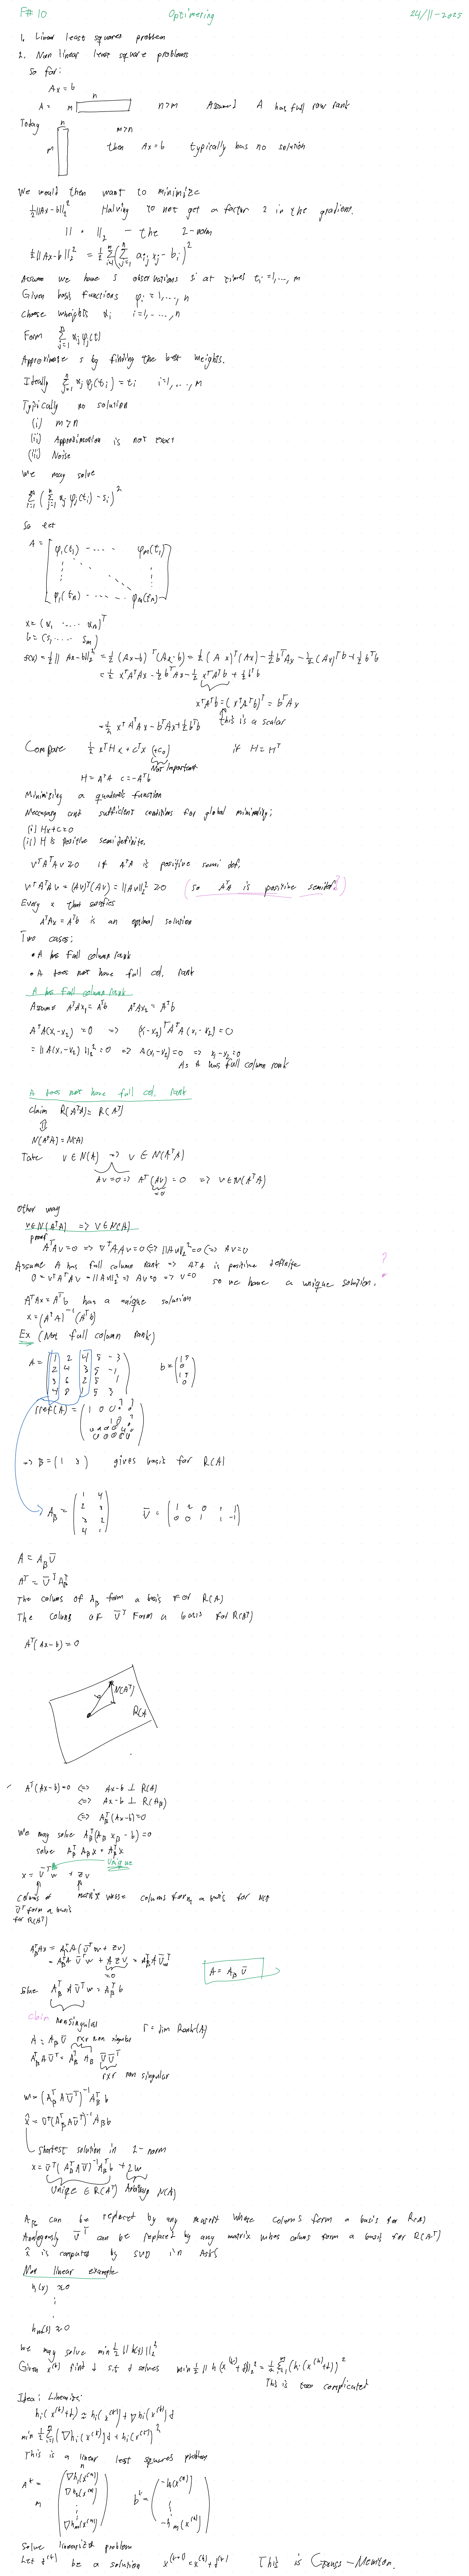 F# 10 Optimering 24/11-2025
1. Linear least squares problem
2. Non linear least square problems
So far:
Ax = b
A = m n n>m Assumed A has full row rank
Today n m>n
m then Ax=b typically has no solution
We would then want to minimize
½||Ax-b||₂² Halving to not get a factor 2 in the gradient.
|| · ||₂ - the 2-norm
½||Ax-b||₂² = ½ Σᵢ₌₁ᵐ (Σⱼ₌₁ⁿ aᵢⱼ xⱼ - bᵢ)²
Assume we have s observations sᵢ at times tᵢ =1,..., m
Given basis functions φᵢ =1,..., n
choose wheights xᵢ i=1,..., n
Form Σⱼ₌₁ⁿ xⱼ φⱼ(t)
Approximate s by finding the best weights.
Ideally Σⱼ₌₁ⁿ xⱼ φⱼ(tᵢ) = tᵢ i=1,..., m
Typically no solution
(i) m>n
(ii) Approximation is not exact
(iii) Noise
We may solve
Σᵢ₌₁ᵐ (Σⱼ₌₁ⁿ xⱼ φⱼ(tᵢ) - sᵢ)²
So let
A = [φ₁(t₁) ---- φₘ(t₁)
φ₁(tₙ) ---- φₘ(tₙ)]
x = (x₁ .... xₙ)ᵀ
b = (s₁ .... sₘ)
f(x) = ½|| Ax-b||₂² = ½ (Ax-b)ᵀ(Ax-b) = ½ (Ax)ᵀ(Ax) - ½bᵀAx - ½(Ax)ᵀb + ½bᵀb
= ½ xᵀAᵀAx - ½ bᵀAx - ½ xᵀAᵀb + ½bᵀb
xᵀAᵀb = (xᵀAᵀb)ᵀ = bᵀAx
= ½ xᵀAᵀAx - bᵀAx + ½bᵀb This is a scalar
Compare ½ xᵀHx + cᵀx (+c₀) if H = Hᵀ
Not important
H = AᵀA c = -Aᵀb
Minimizing a quadratic function
Necessary and sufficient conditions for global minimality:
(i) Hx+c=0
(ii) H is positive semidefinite.
vᵀAᵀAv ≥0 if AᵀA is positive semi def.
vᵀAᵀAv = (Av)ᵀ(Av) = ||Av||₂² ≥ 0 (so AᵀA is positive semidef?)
Every x that satisfies
AᵀAx = Aᵀb is an optimal solution
Two cases:
• A has full column rank
• A does not have full col. rank
A has full column rank
Assume AᵀAx₁ = Aᵀb AᵀAx₂ = Aᵀb
AᵀA(x₁-x₂) = 0 => (x₁-x₂)ᵀAᵀA(x₁-x₂)=0
= ||A(x₁-x₂)||₂² = 0 => A(x₁-x₂)=0 => x₁-x₂=0
As A has full column rank
A does not have full col. rank
Claim R(AᵀA) = R(Aᵀ)
⇕
N(AᵀA) = N(A)
Take v ∈ N(A) => v ∈ N(AᵀA)
Av=0 => Aᵀ(Av) = 0 => v∈N(AᵀA)
=0
Other way
v∈N(AᵀA) => v∈N(A)
proof
AᵀAv=0 => vᵀAᵀAv=0 <=> ||Av||₂²=0 <=> Av=0
Assume A has full column rank => AᵀA is positive definite ?
0 = vᵀAᵀAv = ||Av||₂² => Av=0 => v=0 so we have a unique solution.
AᵀAx = Aᵀb has a unique solution
x = (AᵀA)⁻¹(Aᵀb)
Ex (Not full column rank)
A = (1 2 4 5 -3
2 4 3 5 -1
3 6 2 5 1
4 8 1 5 3) b =
rref(A) =
=> β = (1 3) gives basis for R(A)
A_β = (1 4
2 3
3 2
4 1) Ū = (1 2 0 1 1
0 0 1 1 -1)
A = A_β Ū
Aᵀ = Ūᵀ A_βᵀ
The colums of A_β form a basis for R(A)
The colums of Ūᵀ Form a basis for R(Aᵀ)
Aᵀ(Ax-b) = 0
N(Aᵀ)
R(A
Aᵀ(Ax-b)=0 <=> Ax-b ⊥ R(A)
<=> Ax-b ⊥ R(A_β)
<=> A_βᵀ(Ax-b)=0
We may solve A_βᵀ(A_β x_β - b) = 0
solve A_βᵀ A_β x = A_βᵀ x
unique
x = Ūᵀw + Zv
Colums of matrix whose columns form a basis for
Ūᵀ form a basis
for R(Aᵀ)
A_βᵀAx = A_βᵀA(Ūᵀw + Zv)
= A_βᵀA Ūᵀw + AZv = A_βᵀAŪᵀw
=0
A = A_β Ū
Solve A_βᵀ A Ūᵀ w = A_βᵀ b
Claim nonsingular r = dim Rank(A)
A = A_β Ū rxr non singular
A_βᵀ A Ūᵀ = A_βᵀ A_β Ū Ūᵀ
rxr non singular
w = (A_βᵀ A Ūᵀ)⁻¹ A_βᵀ b
x̂ = Ūᵀ(A_βᵀAŪᵀ)⁻¹ A_β b
Shortest solution in 2-norm
x = Ūᵀ(A_βᵀAŪ)⁻¹A_βᵀb + Zw
Unique ∈ R(Aᵀ) Arbitrary N(A)
A_β can be replaced by any matrix whose columns form a basis for R(A)
Analogously Ūᵀ can be replaced by any matrix whos colums form a basis for R(Aᵀ)
x̂ is computed by SVD in
Non linear example
h₁(x) ≈0
hₘ(x) ≈ 0
We may solve min ½ || h(x) ||₂²
Given x⁽ᵏ⁾ find d s.t d solves min ½ || h(x⁽ᵏ⁾+d)||₂² = ½ Σᵢ₌₁ᵐ (hᵢ(x⁽ᵏ⁾+d))²
This is too complicated
Idea: Linearize:
hᵢ(x⁽ᵏ⁾+d) ≈ hᵢ(x⁽ᵏ⁾) + ∇hᵢ(x⁽ᵏ⁾)d
min ½ Σᵢ₌₁ᵐ (∇hᵢ(x⁽ᵏ⁾)d + hᵢ(x⁽ᵏ⁾))²
This is a linear least squares problem
Aᵏ = m n (∇h₁(x⁽ᵏ⁾)
∇h₂(x⁽ᵏ⁾)
∇hₘ(x⁽ᵏ⁾)) bᵏ = (-h₁(x⁽ᵏ⁾)
-hₘ(x⁽ᵏ⁾))
Solve linearized problem
Let d⁽ᵏ⁾ be a solution x⁽ᵏ⁺¹⁾ = x⁽ᵏ⁾ + d⁽ᵏ⁾ This is Gauss-Newton.